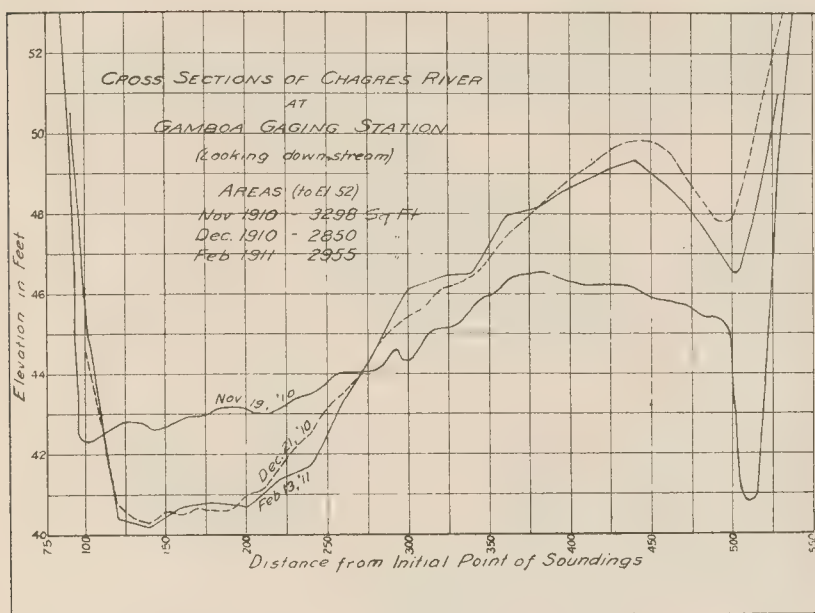 CROSS SECTIONS OF CHAGRES RIVER
AT
GAMBOA GAGING STATION
(Looking down-stream)
AREAS (to El 52)
Nov 1910 - 3298 Sq Ft
Dec. 1910 - 2850 "
Feb 1911 - 2955 "
Elevation in Feet
52
50
48
46
44
42
40
Nov 19, '10
Dec. 21, '10
Feb 13, '11
75 100 150 200 250 300 350 400 450 500 550
Distance from Initial Point of Soundings